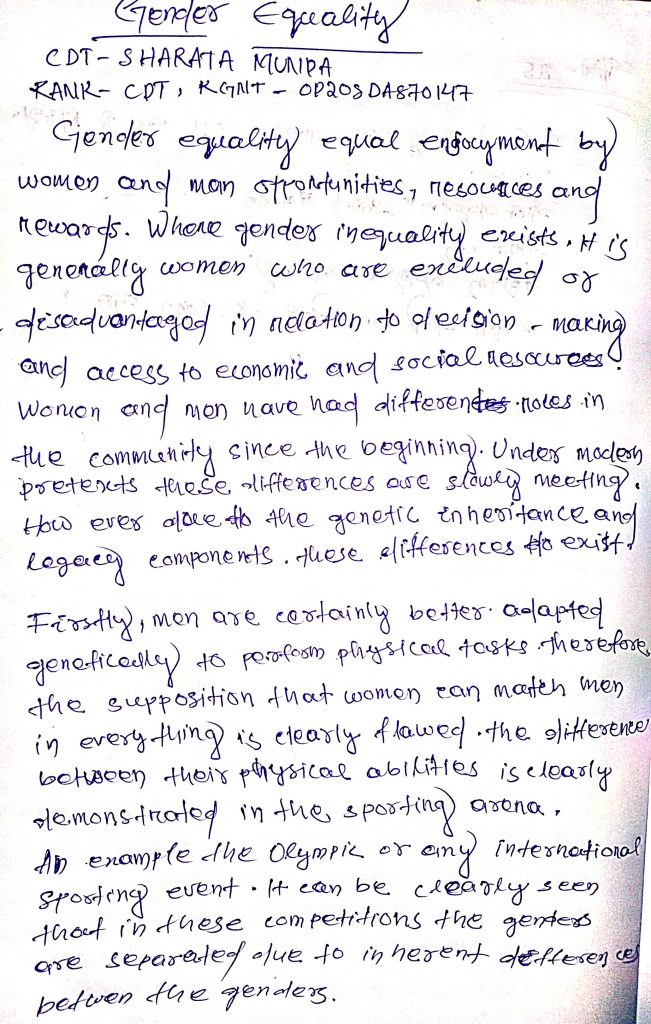 Gender Equality
CDT - SHARATA MUNDA
RANK - CDT, RGNT - OP20SDA870147
Gender equality equal enjocyment by
women and man opportunities, resources and
rewards. Where gender inequality exists. It is
generally women who are excluded or
disadvantaged in relation to decision - making
and access to economic and social resources.
Women and men have had different roles in
the community since the beginning. Under modern
pretexts these differences are slowly meeting.
How ever due to the genetic inheritance and
legacy components. these differences do exist.
Firstly, men are certainly better adapted
genetically to perform physical tasks therefore
the supposition that women can match men
in every thing is clearly flawed. the difference
between their physical abilities is clearly
demonstrated in the sporting arena.
An example the Olympic or any international
sporting event. It can be clearly seen
that in these competitions the genders
are separated due to inherent differences
betwen the genders.